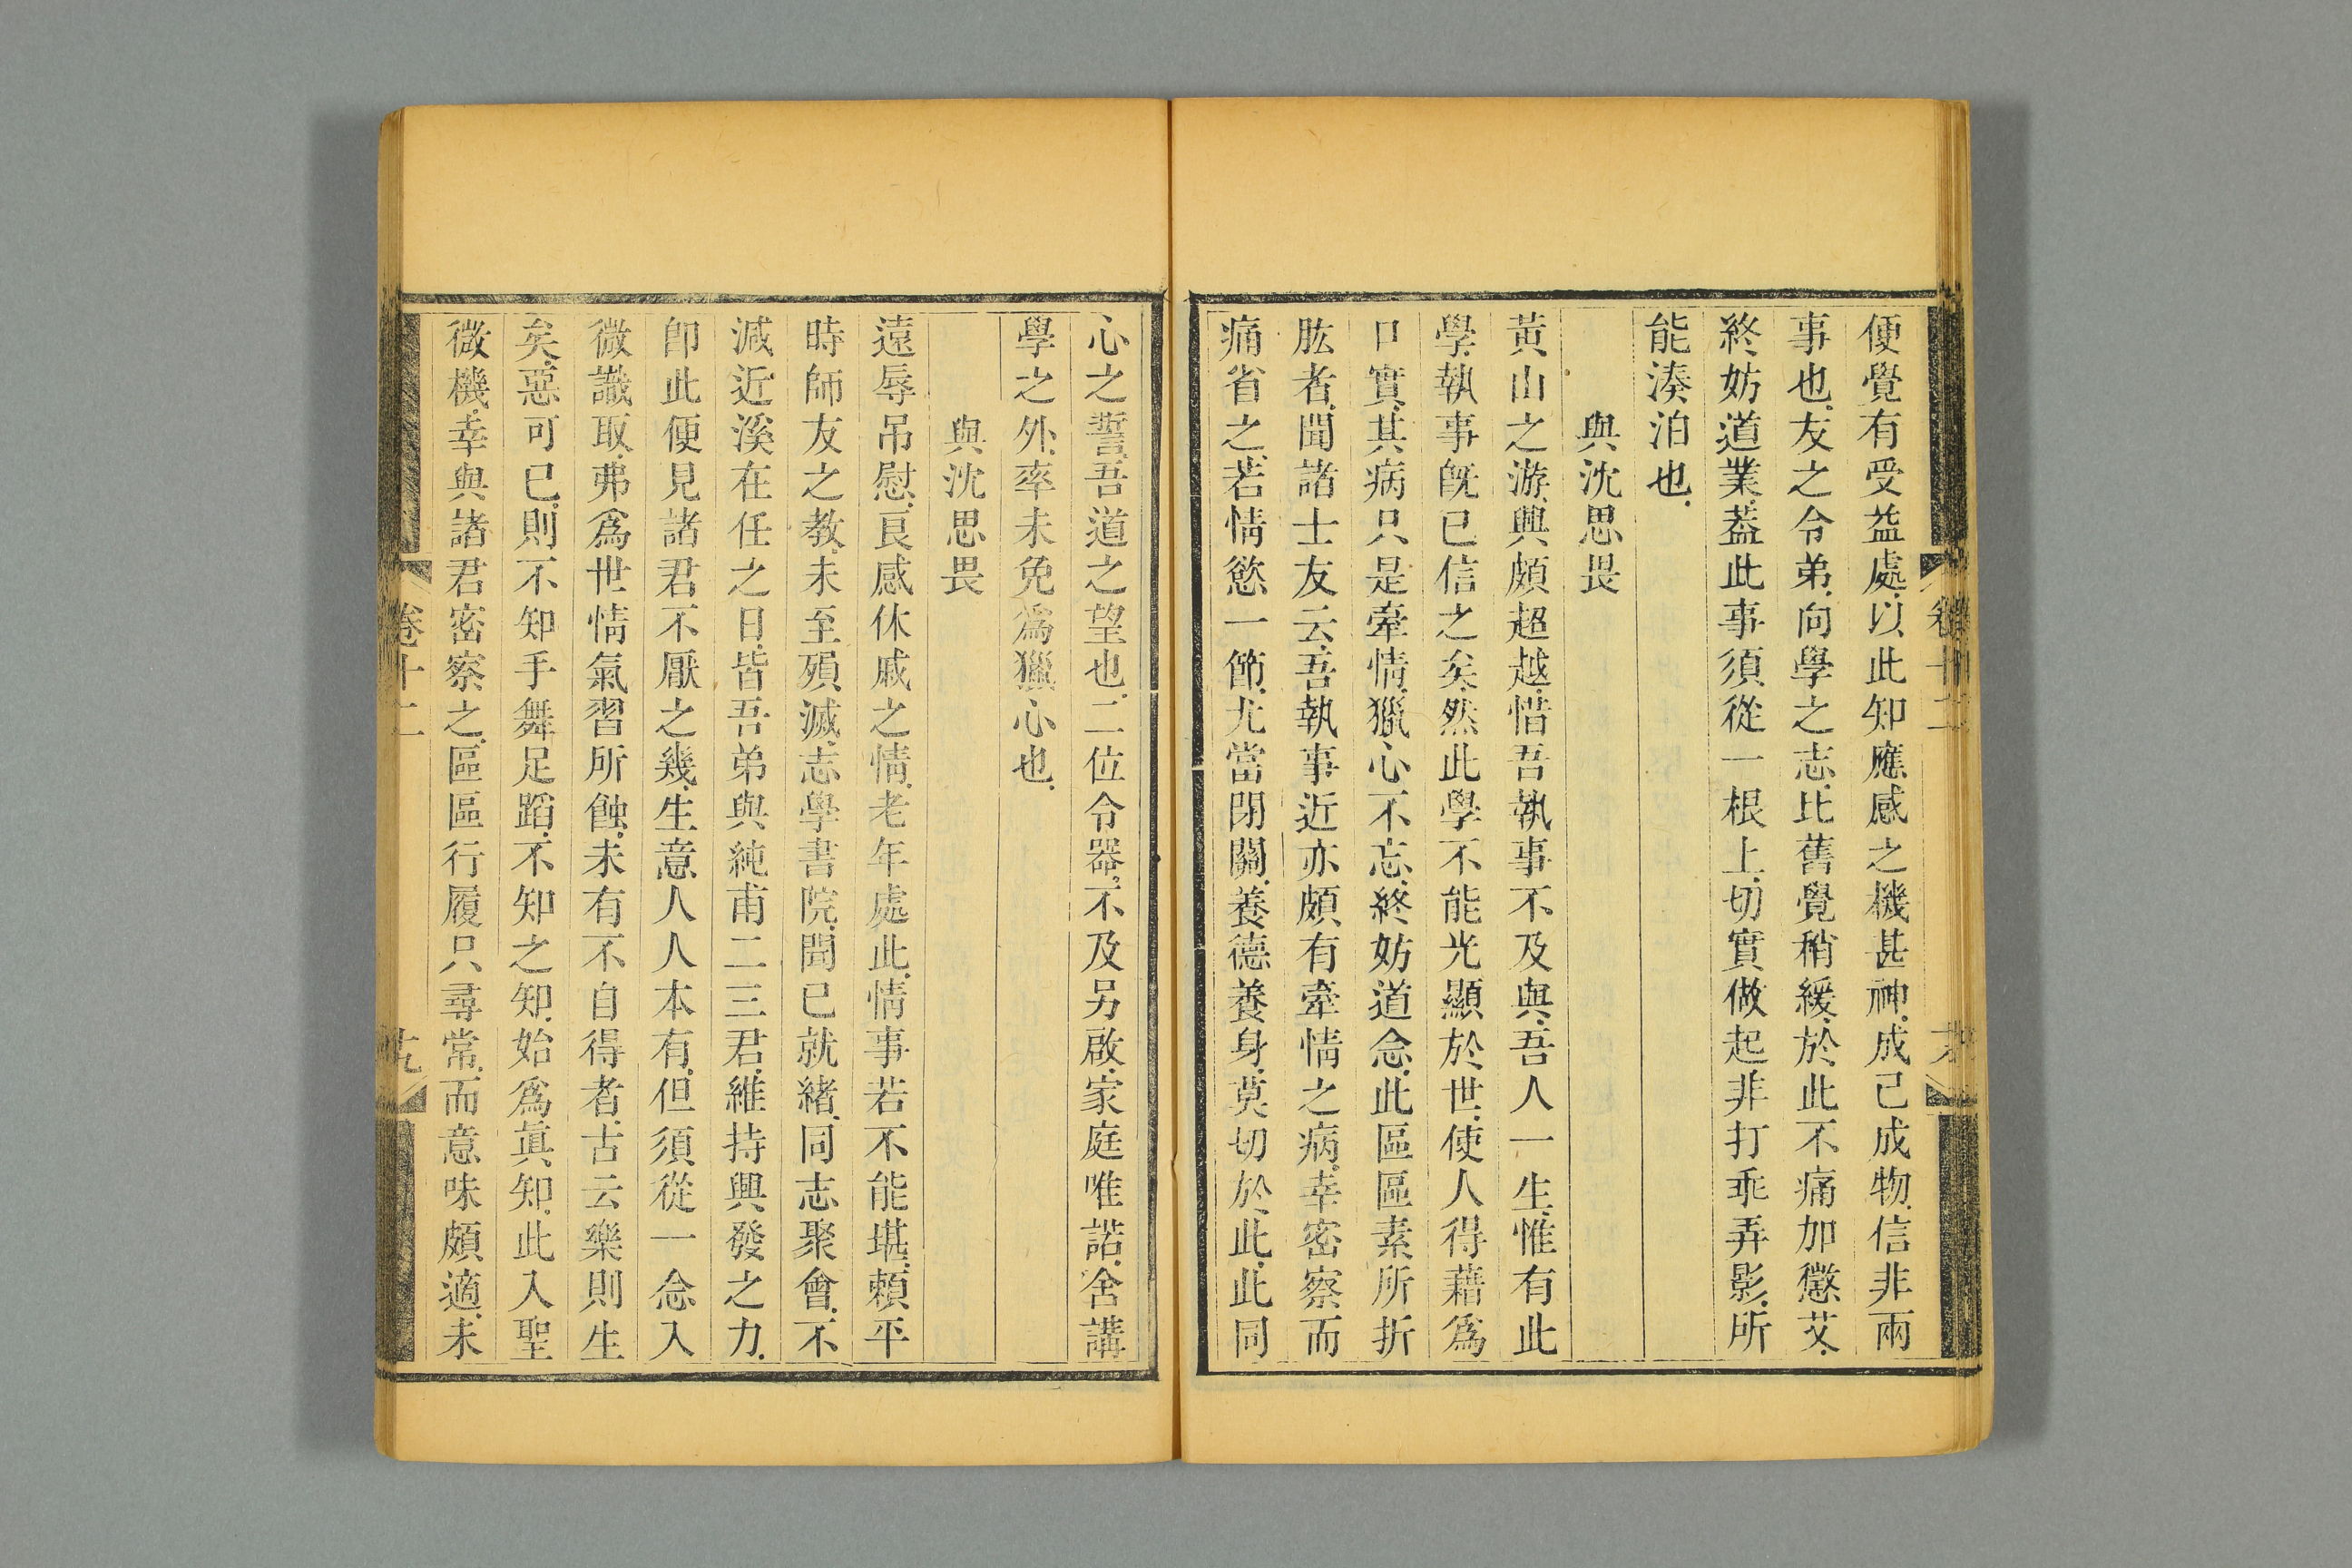 便覺有受益處以此知應感之機甚神成己成物信非兩
事也友之令弟向學之志比舊覺稍緩於此不痛加懲艾
終妨道業葢此事須從一根上切實做起非打乖弄影所
能湊泊也
與沈思畏
黃山之游興頗超越惜吾執事不及與吾人一生惟有此
學執事旣已信之矣然此學不能光顯於世使人得藉爲
口實其病只是牽情獵心不忘終妨道念此區區素所折
肱者聞諸士友云吾執事近亦頗有牽情之病幸密察而
痛省之若情慾一節尤當閉關養德養身莫切於此此同
心之誓吾道之望也二位令器不及另啟家庭唯諾舍講
學之外率未免爲獵心也
與沈思畏
遠辱吊慰良感休戚之情老年處此情事若不能堪賴平
時師友之教未至殞滅志學書院聞已就緒同志聚會不
減近溪在任之日皆吾弟與純甫二三君維持興發之力
卽此便見諸君不厭之幾生意人人本有但須從一念入
微識取弗爲世情氣習所蝕未有不自得者古云樂則生
矣惡可已則不知手舞足蹈不知之知始爲眞知此入聖
微機幸與諸君密察之區區行履只尋常而意味頗適未
卷十二
十九